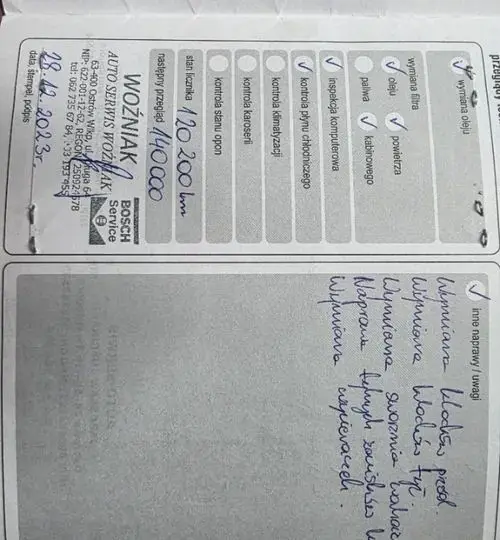 wymiana oleju
wymiana filtra
oleju powietrza
paliwa kabinowego
inspekcja komputerowa
kontrola płynu chłodniczego
kontrola klimatyzacji
kontrola karoserii
kontrola stanu opon
stan licznika 120 200 km
następny przegląd 140 000
WOŹNIAK
AUTO SERWIS WOŹNIAK
63-400 Ostrów Wlkp. ul. Długa 64
NIP: 622-001-12-62, REGON
tel: 062 735 67 84,
BOSCH
Service
28.12.2023r.
data, stempel, podpis
inne naprawy / uwagi
Wymiana klocków przód.
Wymiana klocków tył.
Wymiana sworznia
Naprawa tylnych zacisków
Wymiana